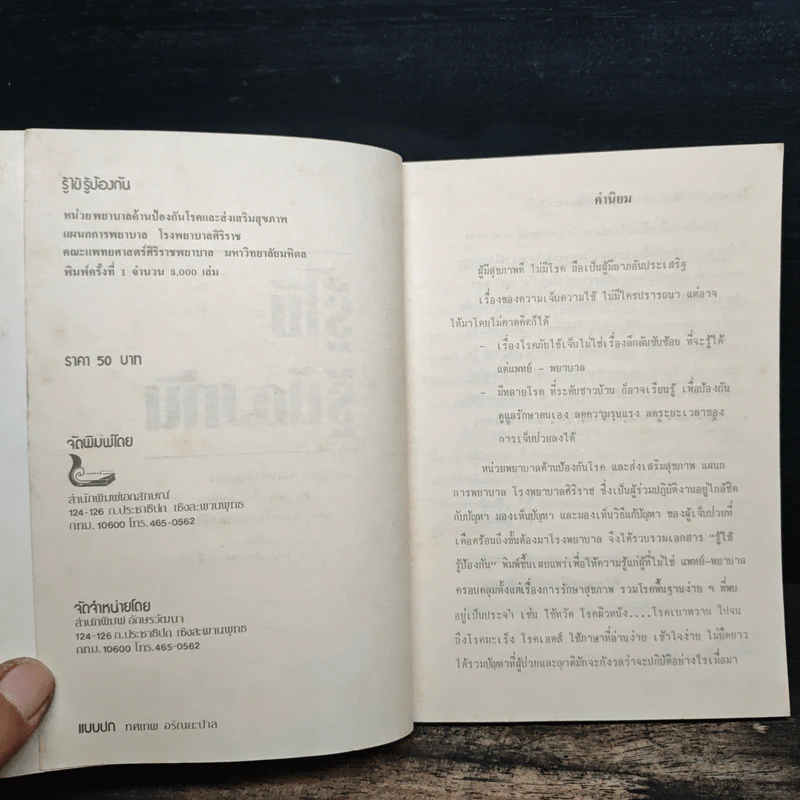 รู้ไข้ รู้ป้องกัน
หน่วยพยาบาลด้านป้องกันโรคและส่งเสริมสุขภาพ
แผนกการพยาบาล โรงพยาบาลศิริราช
คณะแพทยศาสตร์ศิริราชพยาบาล มหาวิทยาลัยมหิดล
พิมพ์ครั้งที่ 1 จำนวน 3,000 เล่ม
ราคา 50 บาท
จัดพิมพ์โดย
สำนักพิมพ์เอกลักษณ์
124-126 ถ.ประชาธิปก เชิงสะพานพุทธ
กทม. 10600 โทร. 465-0562
จัดจำหน่ายโดย
สำนักพิมพ์ อักษรวัฒนา
124-126 ถ.ประชาธิปก เชิงสะพานพุทธ
กทม. 10600 โทร. 465-0562
แบบปก ทศเทพ อรัณยะปาล
คำนิยม
ผู้มีสุขภาพดี ไม่มีโรค ถือเป็นผู้มีลาภอันประเสริฐ
เรื่องของความเจ็บความไข้ ไม่มีใครปรารถนา แต่อาจ
ได้มาโดยไม่คาดคิดก็ได้
- เรื่องโรคภัยไข้เจ็บไม่ใช่เรื่องลึกลับซับซ้อน ที่จะรู้ได้
แต่แพทย์ - พยาบาล
- มีหลายโรค ที่ระดับชาวบ้าน ก็อาจเรียนรู้ เพื่อป้องกัน
ดูแลรักษาตนเอง ลดความรุนแรง ลดระยะเวลาของ
การเจ็บป่วยลงได้
หน่วยพยาบาลด้านป้องกันโรค และส่งเสริมสุขภาพ แผนก
การพยาบาล โรงพยาบาลศิริราช ซึ่งเป็นผู้ร่วมปฏิบัติงานอยู่ใกล้ชิด
กับปัญหา มองเห็นปัญหา และมองเห็นวิธีแก้ปัญหา ของผู้เจ็บป่วยที่
เดือดร้อนถึงขั้นต้องมาโรงพยาบาล จึงได้รวบรวมเอกสาร "รู้ไข้
รู้ป้องกัน" พิมพ์ขึ้นเผยแพร่เพื่อให้ความรู้แก่ผู้ที่ไม่ใช่ แพทย์-พยาบาล
ครอบคลุมตั้งแต่เรื่องการรักษาสุขภาพ รวมโรคพื้นฐานง่าย ๆ ที่พบ
อยู่เป็นประจำ เช่น ไข้หวัด โรคผิวหนัง....โรคเบาหวาน ไปจน
ถึงโรคมะเร็ง โรคเอดส์ ใช้ภาษาที่อ่านง่าย เข้าใจง่าย ไม่ยืดยาว
ได้รวมปัญหาที่ผู้ป่วยและญาติมักจะกังวลว่าจะปฏิบัติอย่างไรเมื่อมา